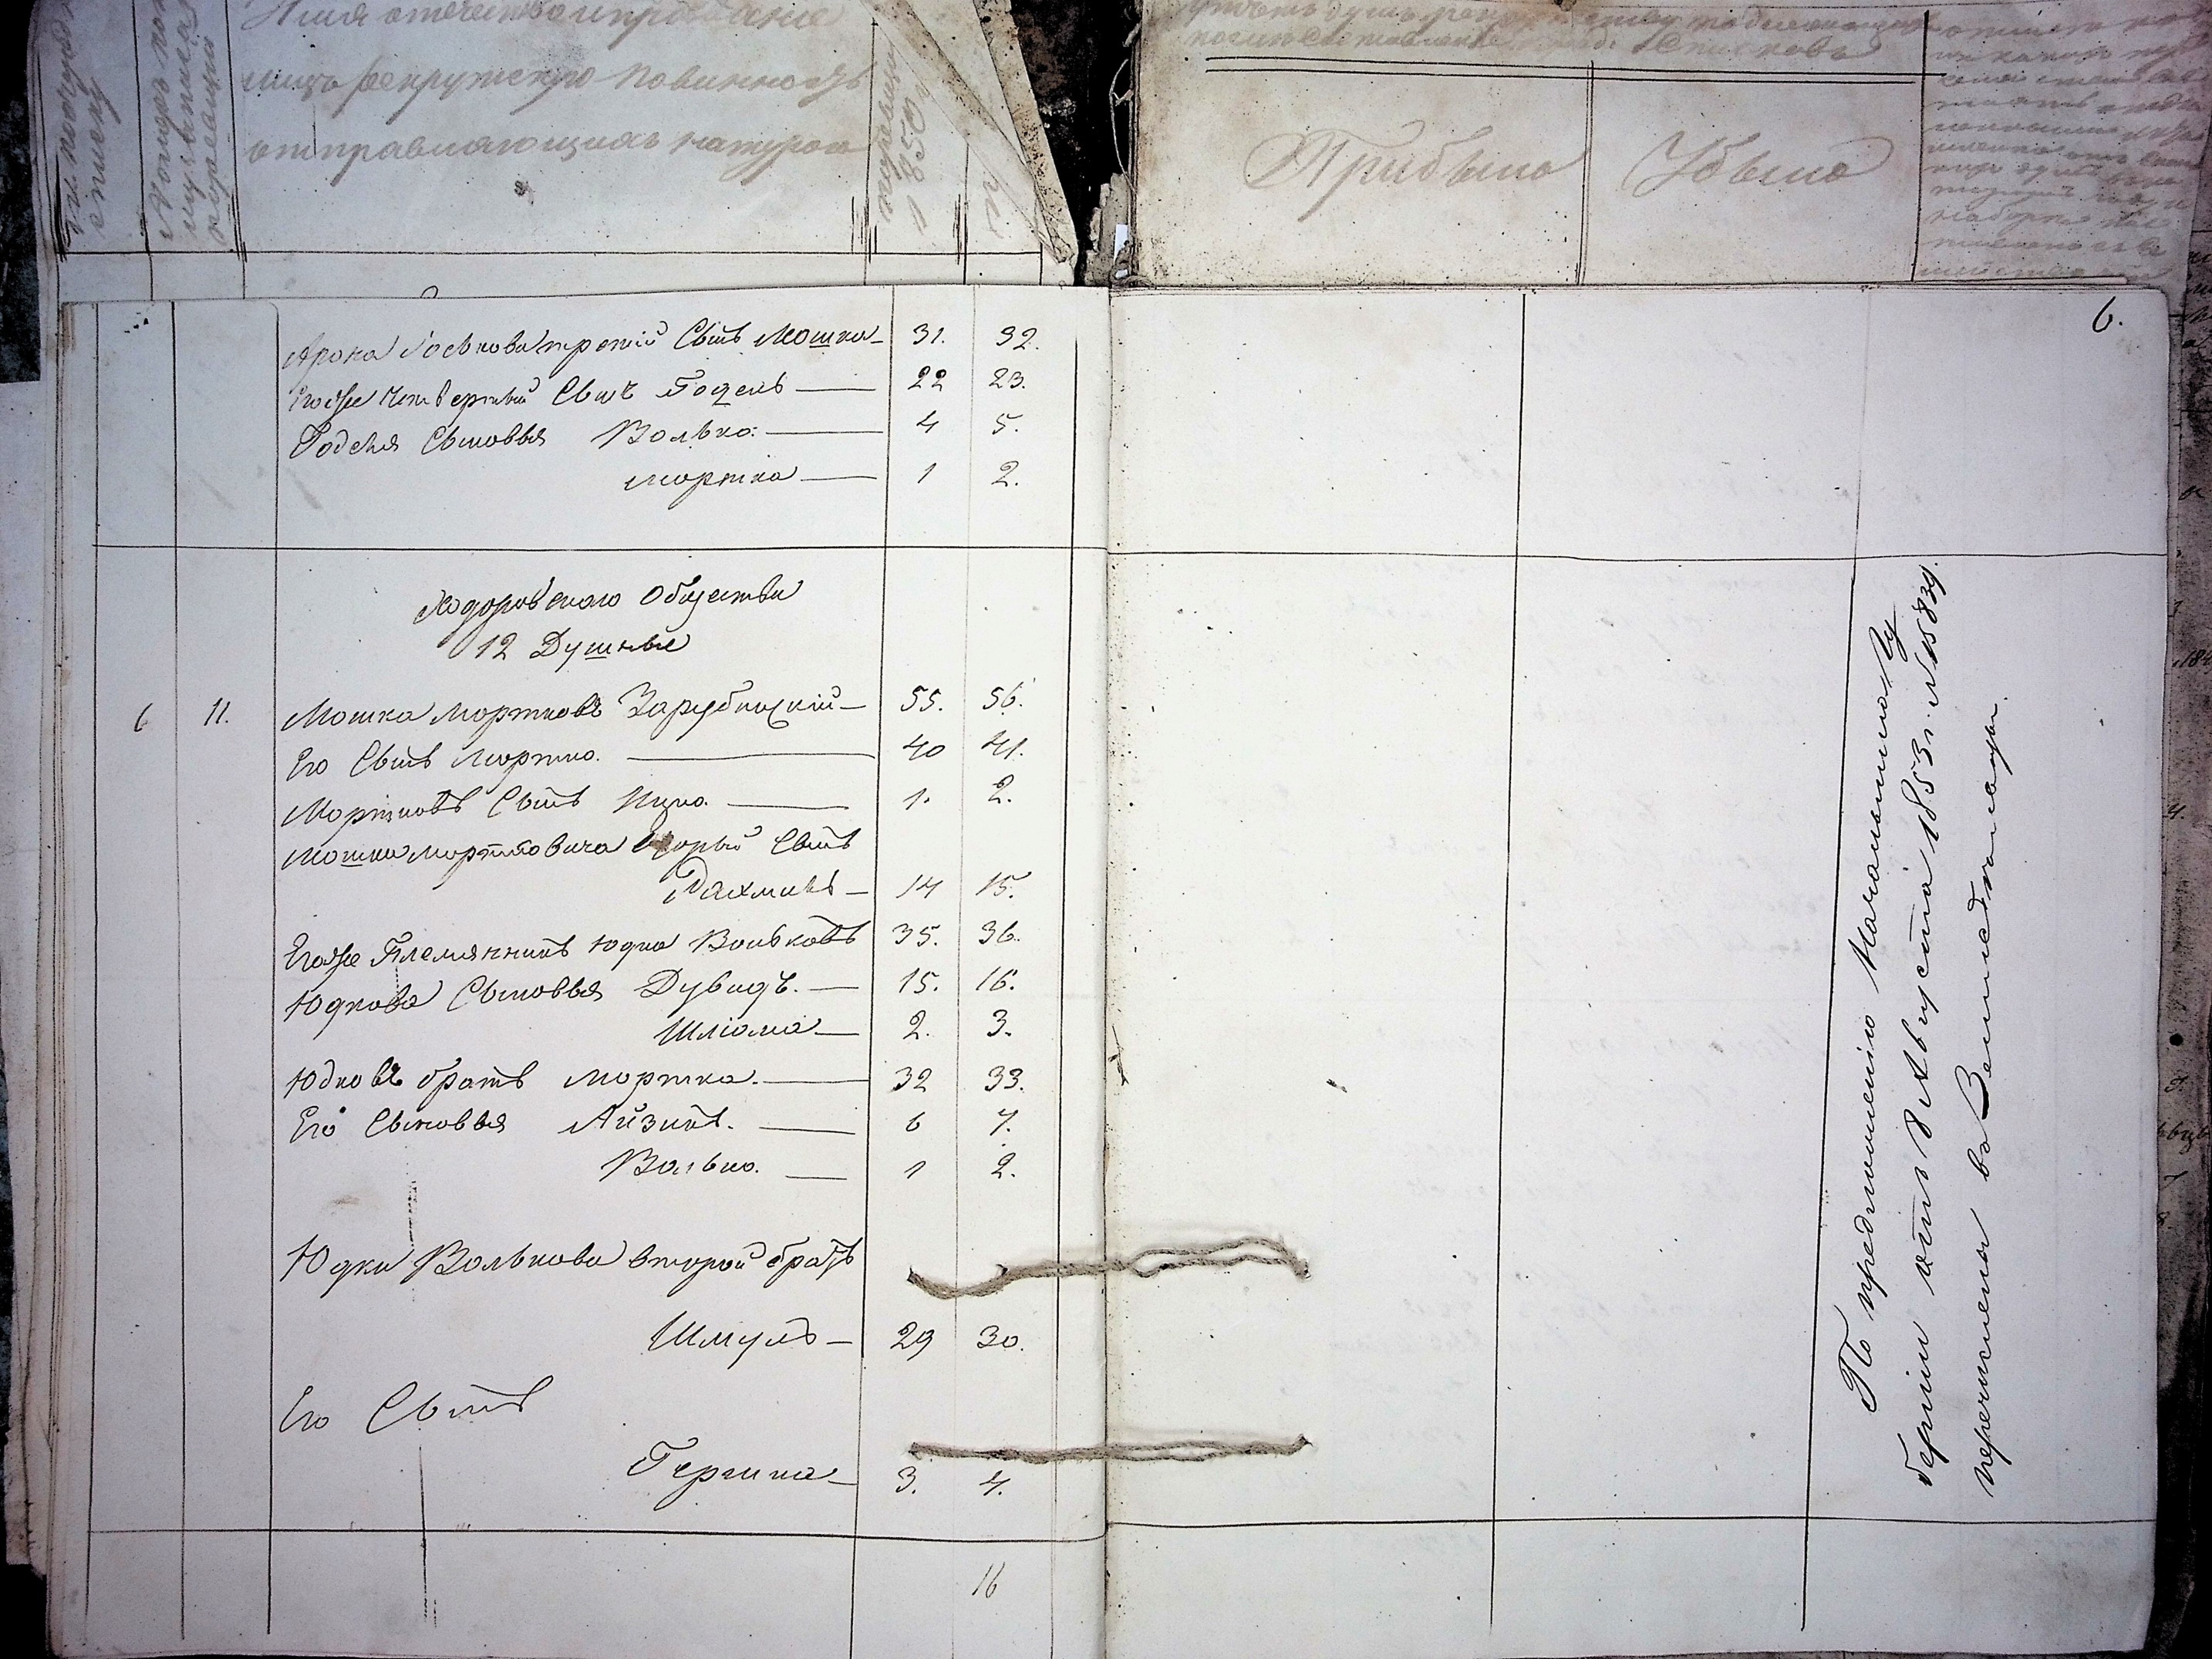 Имя отечество и прозвание
лицъ рекрутскую повинность
отправляющихъ натурою
ревизіи
1850 г
Прибыло
Убыло
6.
Арона Іоськова третій Сынъ Мошка 31. 32.
Егоже Четвертый Сынъ Годель 22 23.
Годеля Сыновья Волько: 4 5.
Мортка 1 2.
Ходоровскаго Общества
12 Душные
6 11. Мошка Мортковъ Зарубинскій 55. 56.
Его Сынъ Мортко. 40 41.
Мортковъ Сынъ Ицко. 1. 2.
Мошки Мортковича Вторый Сынъ
Рахмиль 14 15.
Егоже Племянникъ Юдка Вольковъ 35. 36.
Юдкова Сыновья Дувидъ. 15. 16.
Шліома 2. 3.
Юдковъ братъ Мортка. 32 33.
Его Сыновья Айзикъ. 6 7.
Волько. 1 2.
Юдки Волькова второй братъ
Шмуль 29 30.
Его Сынъ
Гершка 3. 4.
16
По предложенію Начальника Гу
берніи отъ 8 Августа 1853 г. №
перечислены въ Земледѣльцы.